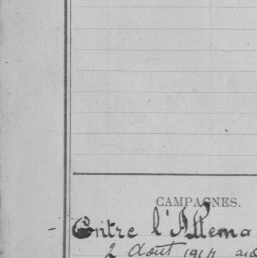 CAMPAGNES.
Contre l'Allema
2 Août 1914 au